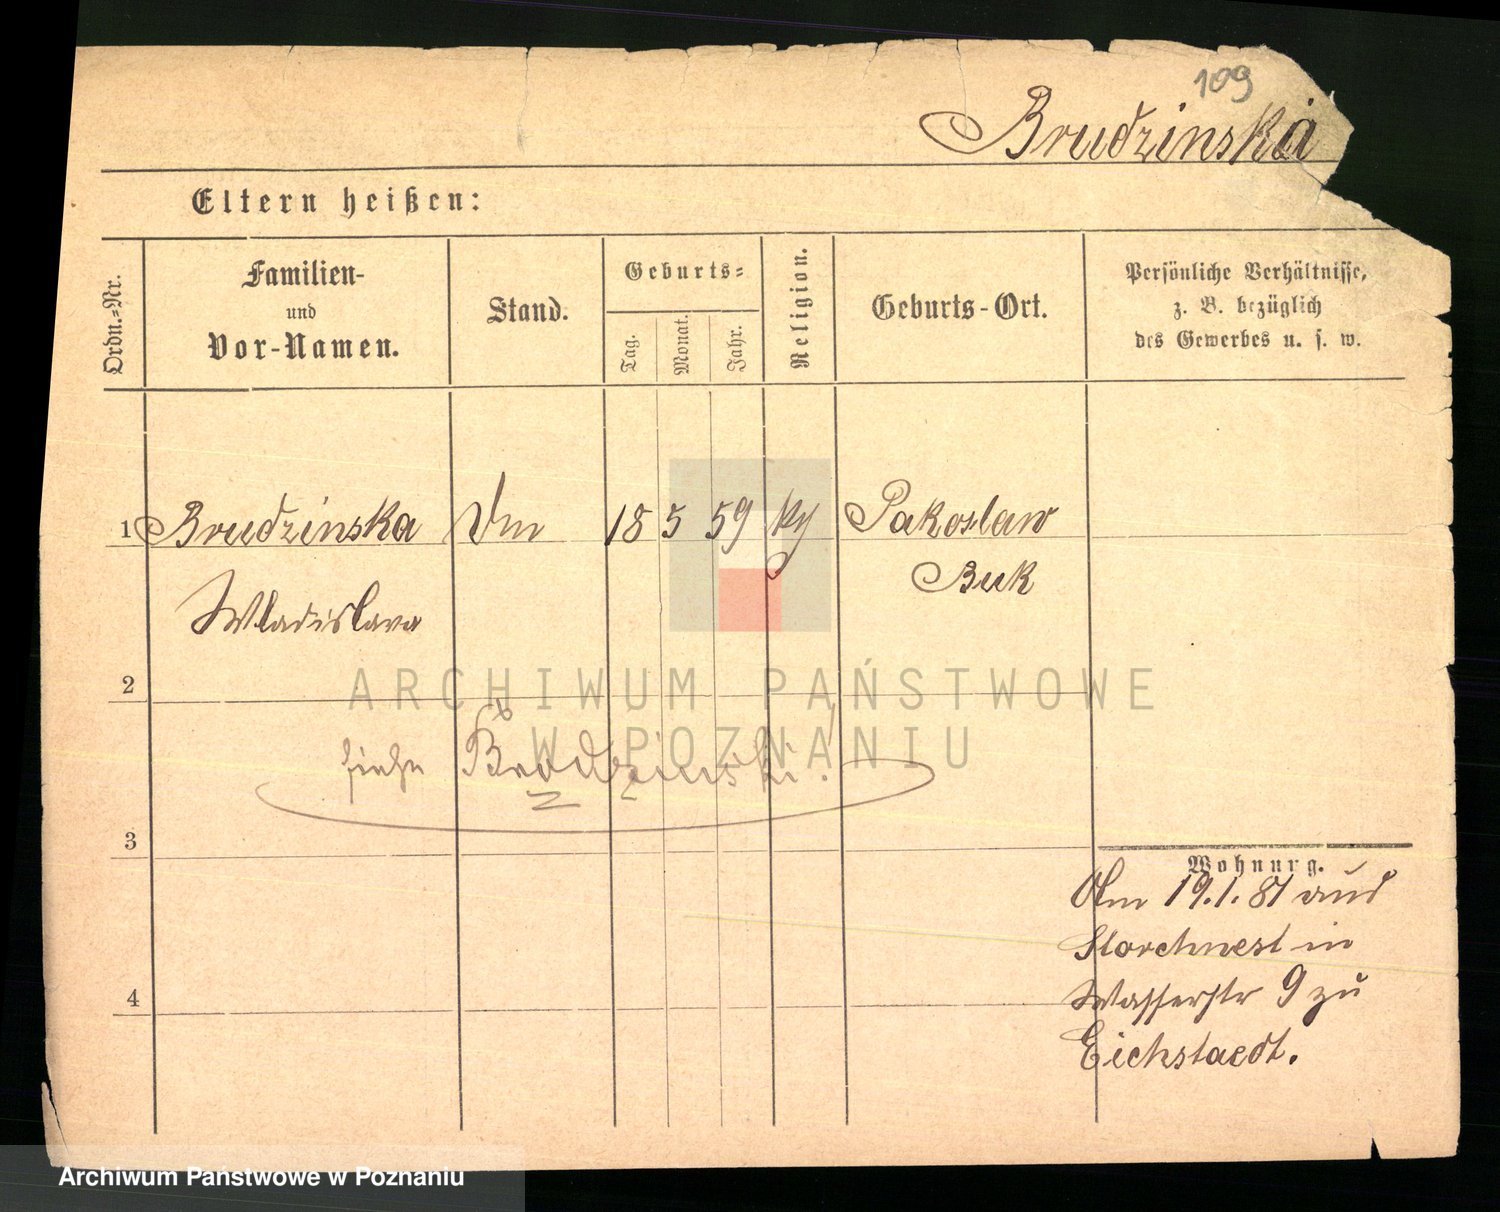 109
Brudzinska
Eltern heißen:
Ordn.-Nr.
Familien-
und
Vor-Namen.
Stand.
Geburts-
Tag.
Monat.
Jahr.
Religion.
Geburts-Ort.
Persönliche Verhältnisse,
z. B. bezüglich
des Gewerbes u. s. w.
1 Brudzinska 18 5 59 Pakoslaw
Buk
Wladislava
2
ARCHIWUM PAŃSTWOWE
W POZNANIU
siehe Brodzinski!
3
Wohnung.
19.1.81 aus
Storchnest in
Wasserstr 9 zu
4
Eichstaedt.
Archiwum Państwowe w Poznaniu